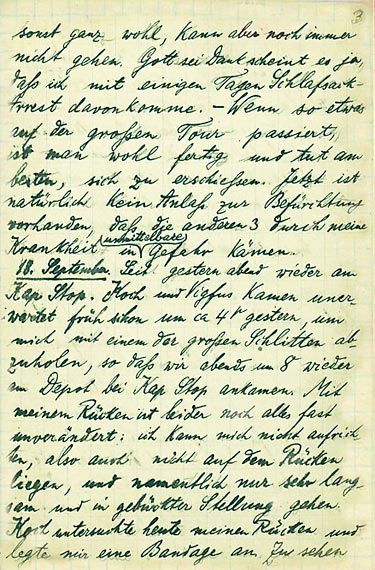 3
sonst ganz wohl, kann aber noch immer
nicht gehen. Gott sei Dank scheint es ja,
daß ich mit einigen Tagen Schlafsack-
Arrest davonkomme. – Wenn so etwas
auf der großen Tour passiert,
ist man wohl fertig und tut am
besten, sich zu erschießen. Jetzt ist
natürlich kein Anlaß zur Befürchtung
vorhanden, daß die anderen 3 durch meine
Krankheit in unmittelbare Gefahr kämen.
18. September. Seit gestern abend wieder am
Kap Stop. Koch und Vigfus kamen uner-
wartet früh schon um ca 4h gestern, um
mich mit einem der großen Schlitten ab-
zuholen, so daß wir abends um 8 wieder
am Depot bei Kap Stop ankamen. Mit
meinem Rücken ist leider noch alles fast
unverändert: ich kann mich nicht aufrich
ten, also auch nicht auf dem Rücken
liegen, und namentlich nur sehr lang-
sam und in gebückter Stellung gehen.
Koch untersuchte heute meinen Rücken und
legte mir eine Bandage an. Zu sehen